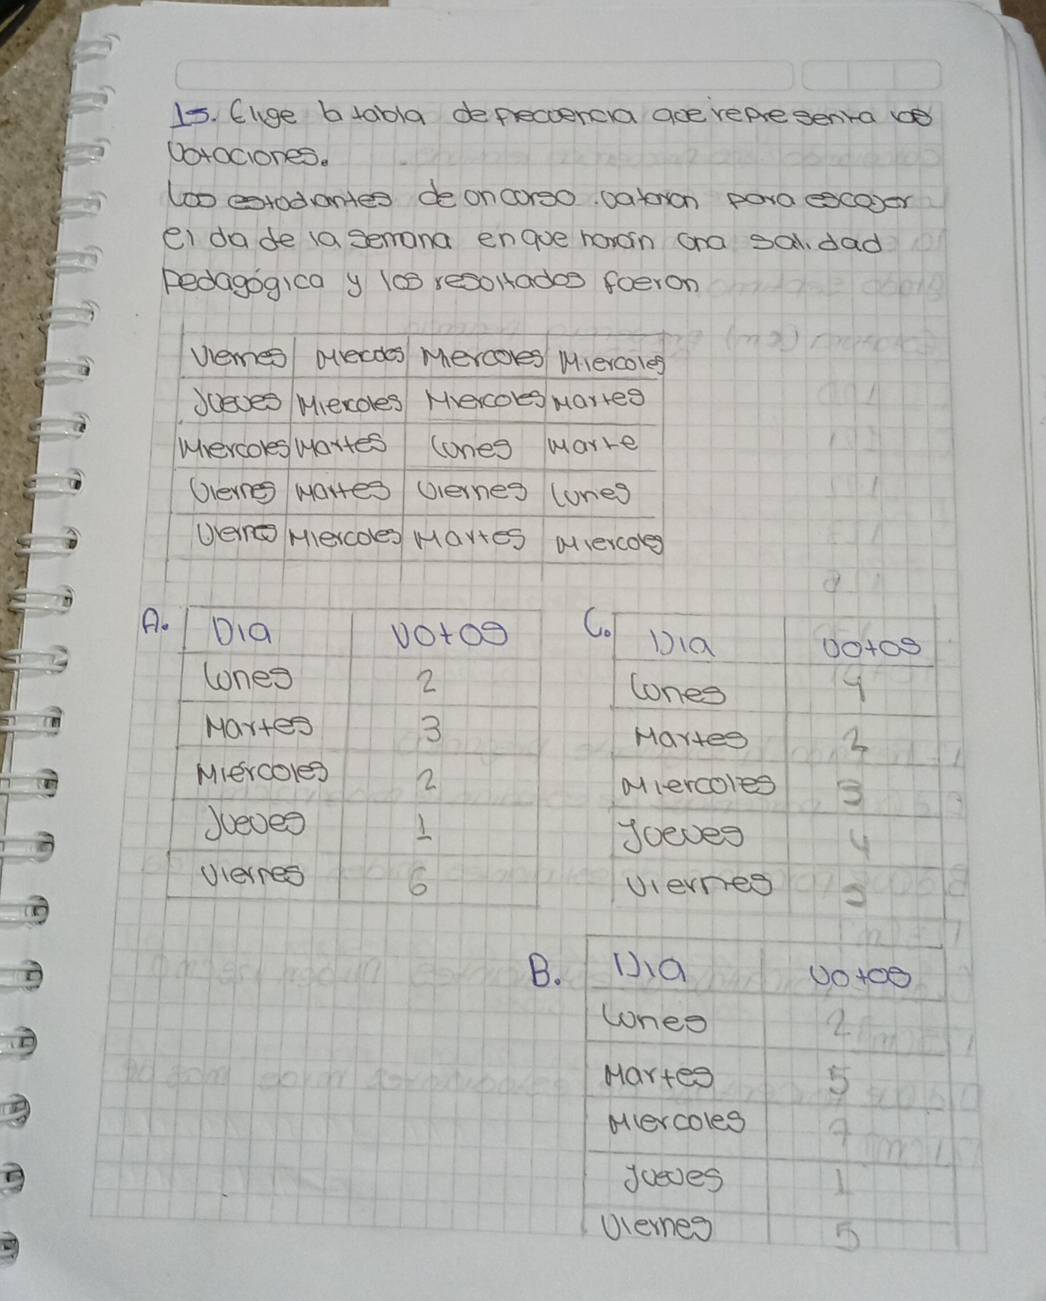 15. Elige la tabla de frecuencia que representa las
Votaciones.
Los estudiantes de un curso votaron para escoger
el da de la semana en que harán una salidad
Pedagógica y los resultados fueron
Viernes Miercoles Miercoles Miercoles
Jueves Miercoles Miercoles Martes
Miercoles Martes Lunes Marte
Viernes Martes Viernes Lunes
Viernes Miercoles Martes Miercoles
A. Dia Votos
Lunes 2
Martes 3
Miércoles 2
Jueves 1
Viernes 6
C. Dia Votos
Lunes 4
Martes 2
Miercoles 3
Jueves 4
Viernes 5
B. Dia Votos
Lunes 2
Martes 5
Miercoles 7
Jueves 1
Viernes 5